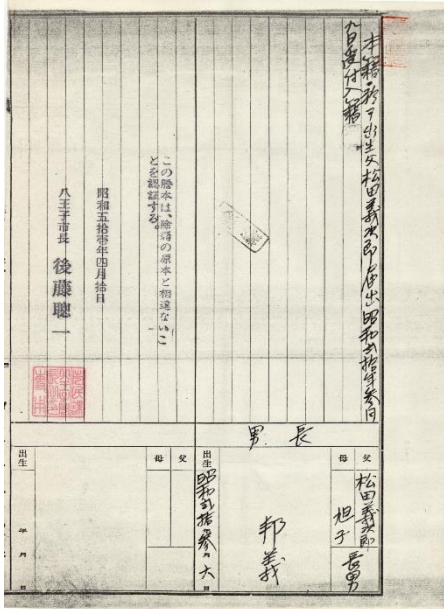 本籍ニ於テ出生父松田義次郎届出昭和弐拾年参月
九日受付入籍
この謄本は、除籍の原本と相違ないこ
とを認証する。
昭和五拾壱年四月拾日
八王子市長 後藤聰一
長男
父 松田義次郎
母 担子
長男
邦義
出生 昭和弐拾年参月六日
父
母
出生 年 月 日